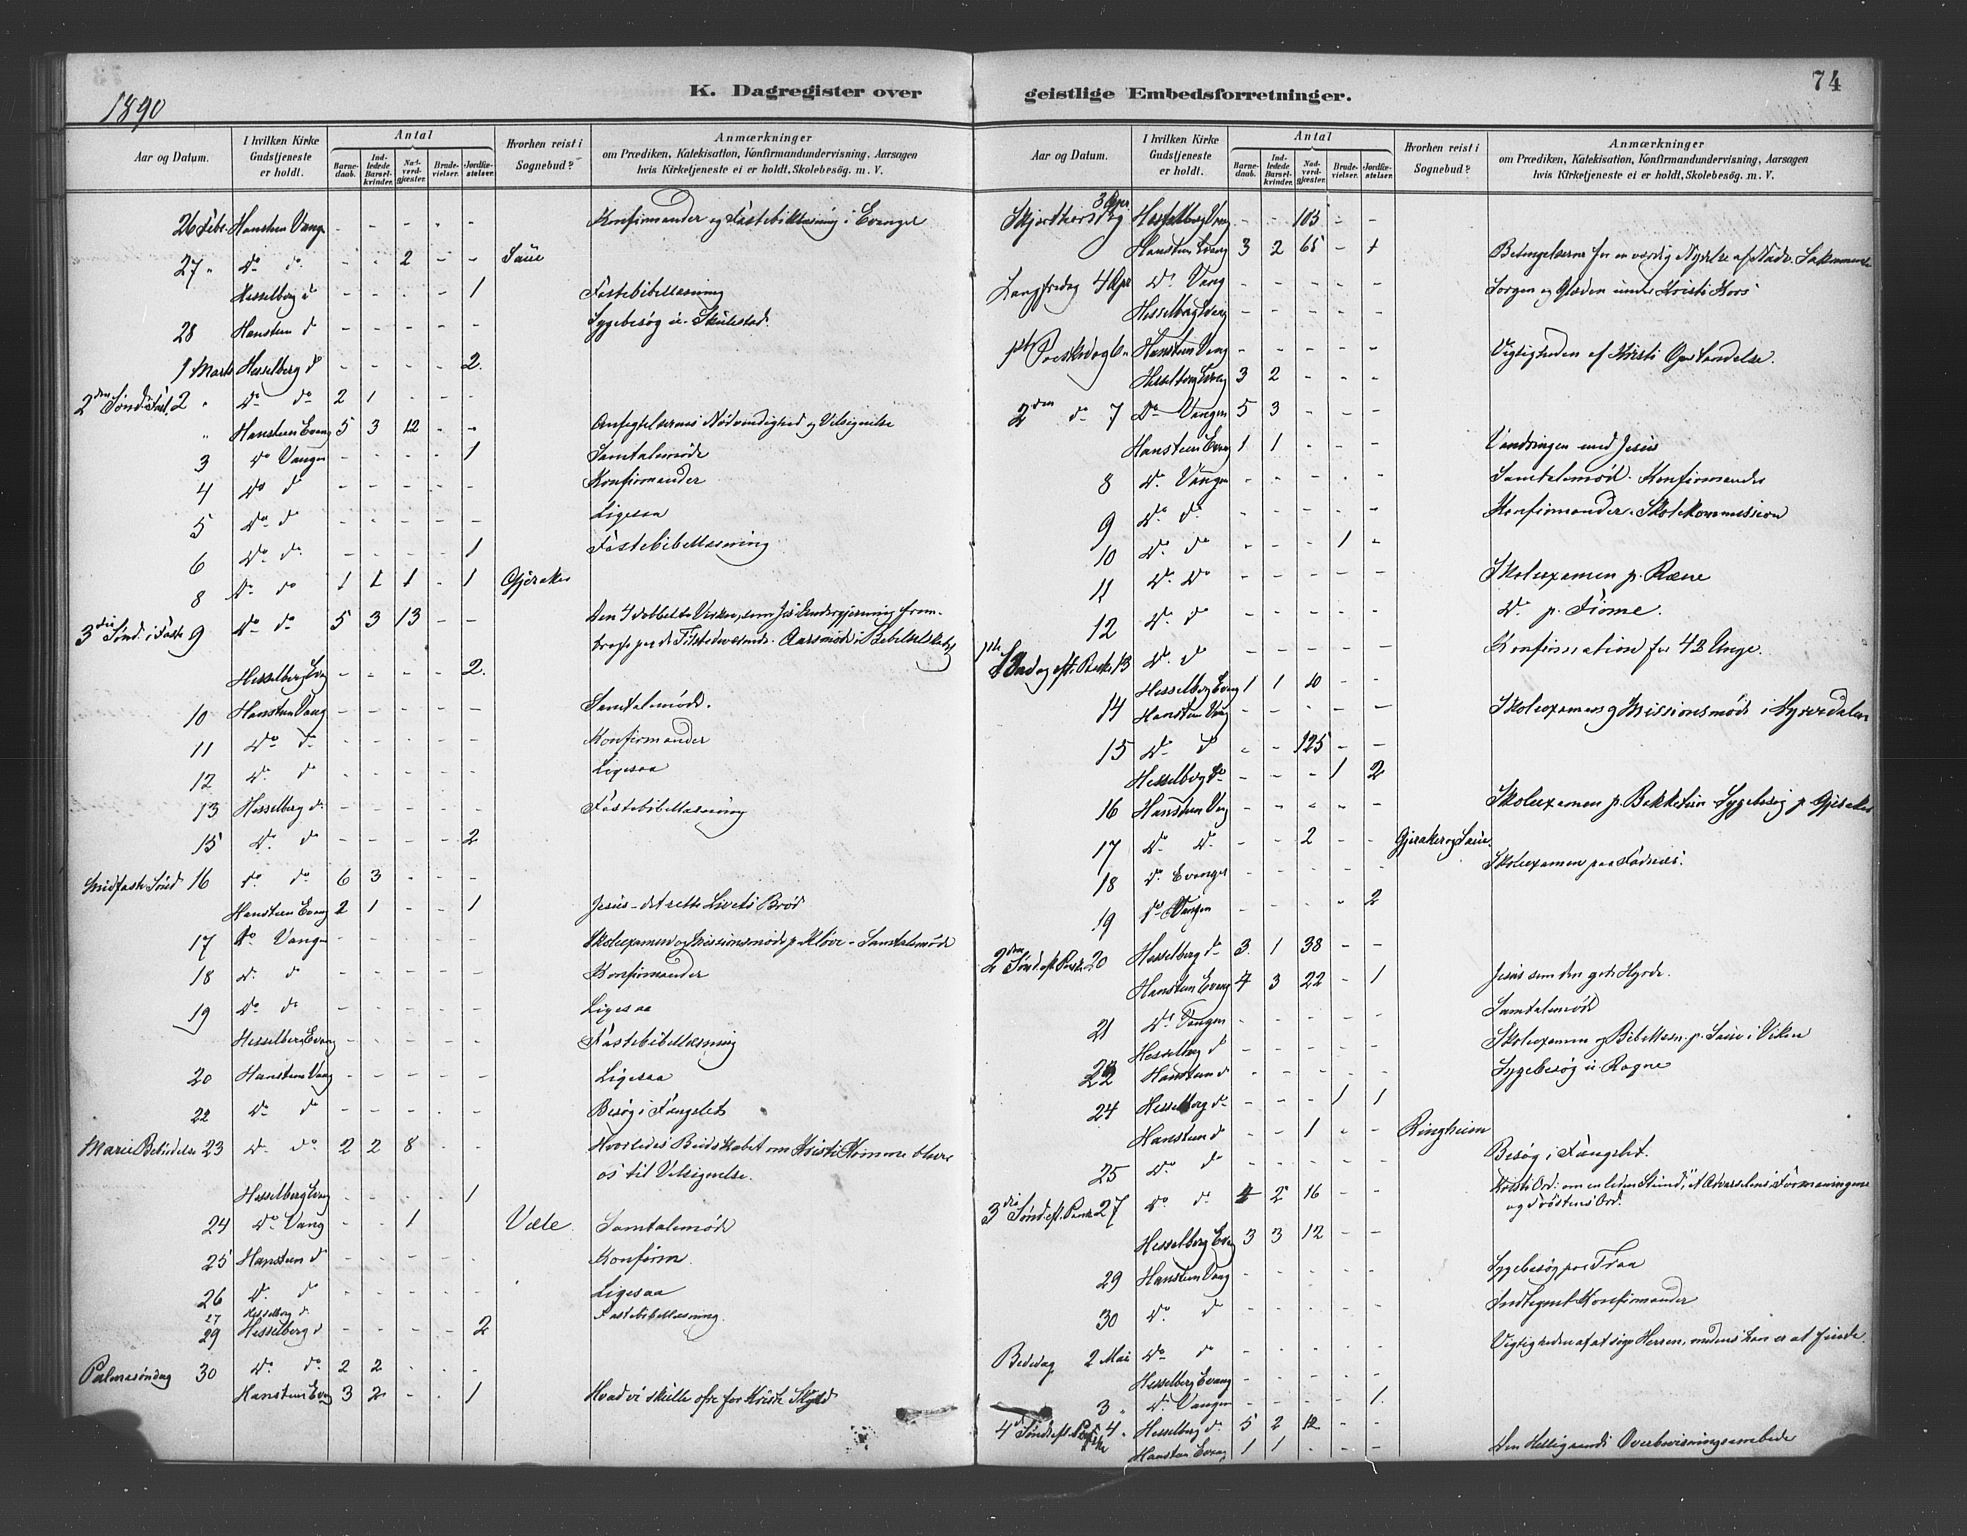 1890
K. Dagregister over
Aar og Datum.
I hvilken Kirke Gudstjeneste er holdt.
Antal
Barnedaab.
Indledede Barselkvinder.
Nadverdgjæster.
Brudevielser.
Jordfæstelser.
Hvorhen reist i Sognebud?
Anmærkninger
om Prædiken, Katekisation, Konfirmandundervisning, Aarsagen
hvis Kirketjeneste ei er holdt, Skolebesøg. m. V.
26 Febr. Hansteen Vang - - - - - Konfirmander og Fastebibellæsning i Evanger
27 " Do do - - 2 - - Saue
Hesselberg d - - - - 1 Fastebibellæsning
28 Hansteen d - - - - - Sygebesøg
1 Marts Hesselberg d - - - - 2.
2den Sønd. i Fast. 2 " Do do 2 1 - - -
" Hansteen Evang 5 3 12 - - Anfegtelsernes Nødvendighed og Velsignelse
3 do Vangen - - - - 1 Samtalemøde
4 Do d - - - - - Konfirmander
5 Do d - - - - - Ligesaa
6 Do do - - - - 1 Fastebibellæsning
8 Do do 1 1 1 - 1 Gjeraker
3die Sønd. i Faste 9 Do do 5 3 13 - -
Hesselberg Evang - - - - 2.
10 Hansteen Vang - - - - - Samtalemøde.
11 Do do - - - - - Konfirmander
12 Do do - - - - - Ligesaa
13 Hesselberg d - - - - - Fastebibellæsning
15 Do do - - - - 2
Midfaste Sønd 16 do do 6 3 - - -
Hansteen Evang 2 1 - - 1 Jesus - det rette Livets Brød
17 Do Vangen - - - - - Skoleexamen og Missionsmøde p. Kløve - Samtalemøde
18 Do d - - - - - Konfirmander
19 Do do - - - - - Ligesaa
Hesselberg Evang - - - - - Fastebibellæsning
20 Hansteen Vang - - - - - Ligesaa
22 Do do - - - - - Besøg i Fængslet
Marie Bebudelse 23 Do do 2 2 8 - - Hvorledes Budskabet om Kristi Komme bliver
os til Velsignelse.
Hesselberg Evang - - - - 1
24 Do Vang - - 1 Væte Samtalemøde
25 Hansteen d - - - - - Konfirm.
26 Do do - - - - - Ligesaa
27 Hesselberg d. Fastebibellæsning.
29 Hesselberg d - - - - 2
Palmesøndag 30 Do do 2 2 - - -
Hansteen Evang 3 2 - - 1 Hvad vi skulle ofre for Kristi Skyld
geistlige Embedsforretninger.
74
Aar og Datum.
I hvilken Kirke Gudstjeneste er holdt.
Antal
Barnedaab.
Indledede Barselkvinder.
Nadverdgjæster.
Brudevielser.
Jordfæstelser.
Hvorhen reist i Sognebud?
Anmærkninger
om Prædiken, Katekisation, Konfirmandundervisning, Aarsagen
hvis Kirketjeneste ei er holdt, Skolebesøg. m. V.
Skjærthorsdag 3 Apr Hesselberg Vang - - 103 - -
Hansteen Evang 3 2 65 - 1 Betingelserne for en værdig Nydelse af Nadv. Sakramente
Langfredag 4 Apr Do Vang - - - - - Sorgen og Glæden under Kristi Kors
Hesselberg Evang - - - - -
1ste Paaskedag 6 " Hansteen Vang - - - - - Vigtigheden af Kristi Opstandelse.
Hesselberg Evang 3 2 - - -
2den do 7 Do Vangen 5 3 - - -
Hansteen Evang 1 1 - - - Vandringen med Jesus
8 Do Vangen - - - - - Samtalemøde. Konfirmander
9 Do do - - - - - Konfirmander. Skolekommission
10 Do do - - - 1 -
11 Do Do - - - - - Skoleexamen p. Ræne
12 Do do - - - - - Do p.
1ste Sønd og eft. Paaske 13 Do do - - - - - Konfirmation for 42 Unge.
Hesselberg Evang 1 1 - -
14 Hansteen Vang - - - - - Skoleexamen og Missionsmøde i
15 Do do - - 125 - -
Hesselberg do - - - 1 2
16 Hansteen Vang - - - - - Skoleexamen p. Bakketun - Sygebesøg p. Gjeraker
17 Do Do - - 2 - - Gjeraker og Saue.
18 Do Evanger - - - - - Skoleexamen paa Fadnes.
19 do Vangen - - - - 2
2den Sønd. eft. Paaske 20 Hesselberg do 3 1 38 - -
Hansteen Evang 4 3 22 - 1 Jesus som den gode Hyrde.
21 Do Vangen - - - - - Samtalemøde
Hesselberg d - - - - - Skoleexamen og Bibellæsn. p. Saue i Viken
22 Hansteen d - - - - - Sygebesøg
24 Hesselberg do - - - 1 1
Hansteen d - - 1 - - Ringheim
25 Do do - - - - - Besøg i Fængslet.
3die Sønd. eft. Paaske 27 Do do 4 2 16 - - Kristi Ord: om en liden Stund, et Advarselens, Formaningens
og Trøstens Ord.
Hesselberg Evang 3 3 12 - -
29 Hansteen Vang - - - - - Sygebesøg paa Traa
30 Do do - - - - - Indtegnet Konfirmander
Bededag 2 Mai Do do - - - - - Vigtigheden af at søge Herren, medens han er at finde.
Hesselberg Evang - - - - -
3 " Do Vangen - - - - 1.
4d Sønd. eft. Paaske 4 " Hesselberg do 5 2 12 - -
Hansteen Evang 1 1 - - - Den Helligaands Overbevisningsarbeide